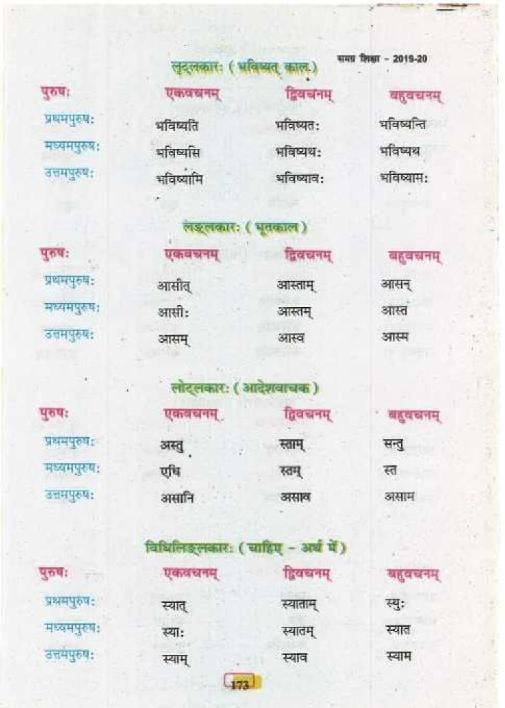 समग्र शिक्षा - 2019-20
लृट्लकारः ( भविष्यत् काल )
पुरुषः एकवचनम् द्विवचनम् बहुवचनम्
प्रथमपुरुषः भविष्यति भविष्यतः भविष्यन्ति
मध्यमपुरुषः भविष्यसि भविष्यथः भविष्यथ
उत्तमपुरुषः भविष्यामि भविष्यावः भविष्यामः
लङ्लकारः ( भूतकाल )
पुरुषः एकवचनम् द्विवचनम् बहुवचनम्
प्रथमपुरुषः आसीत् आस्ताम् आसन्
मध्यमपुरुषः आसीः आस्तम् आस्त
उत्तमपुरुषः आसम् आस्व आस्म
लोट्लकारः ( आदेशवाचक )
पुरुषः एकवचनम् द्विवचनम् बहुवचनम्
प्रथमपुरुषः अस्तु स्ताम् सन्तु
मध्यमपुरुषः एधि स्तम् स्त
उत्तमपुरुषः असानि असाव असाम
विधिलिङ्लकारः ( चाहिए - अर्थ में )
पुरुषः एकवचनम् द्विवचनम् बहुवचनम्
प्रथमपुरुषः स्यात् स्याताम् स्युः
मध्यमपुरुषः स्याः स्यातम् स्यात
उत्तमपुरुषः स्याम् स्याव स्याम
173